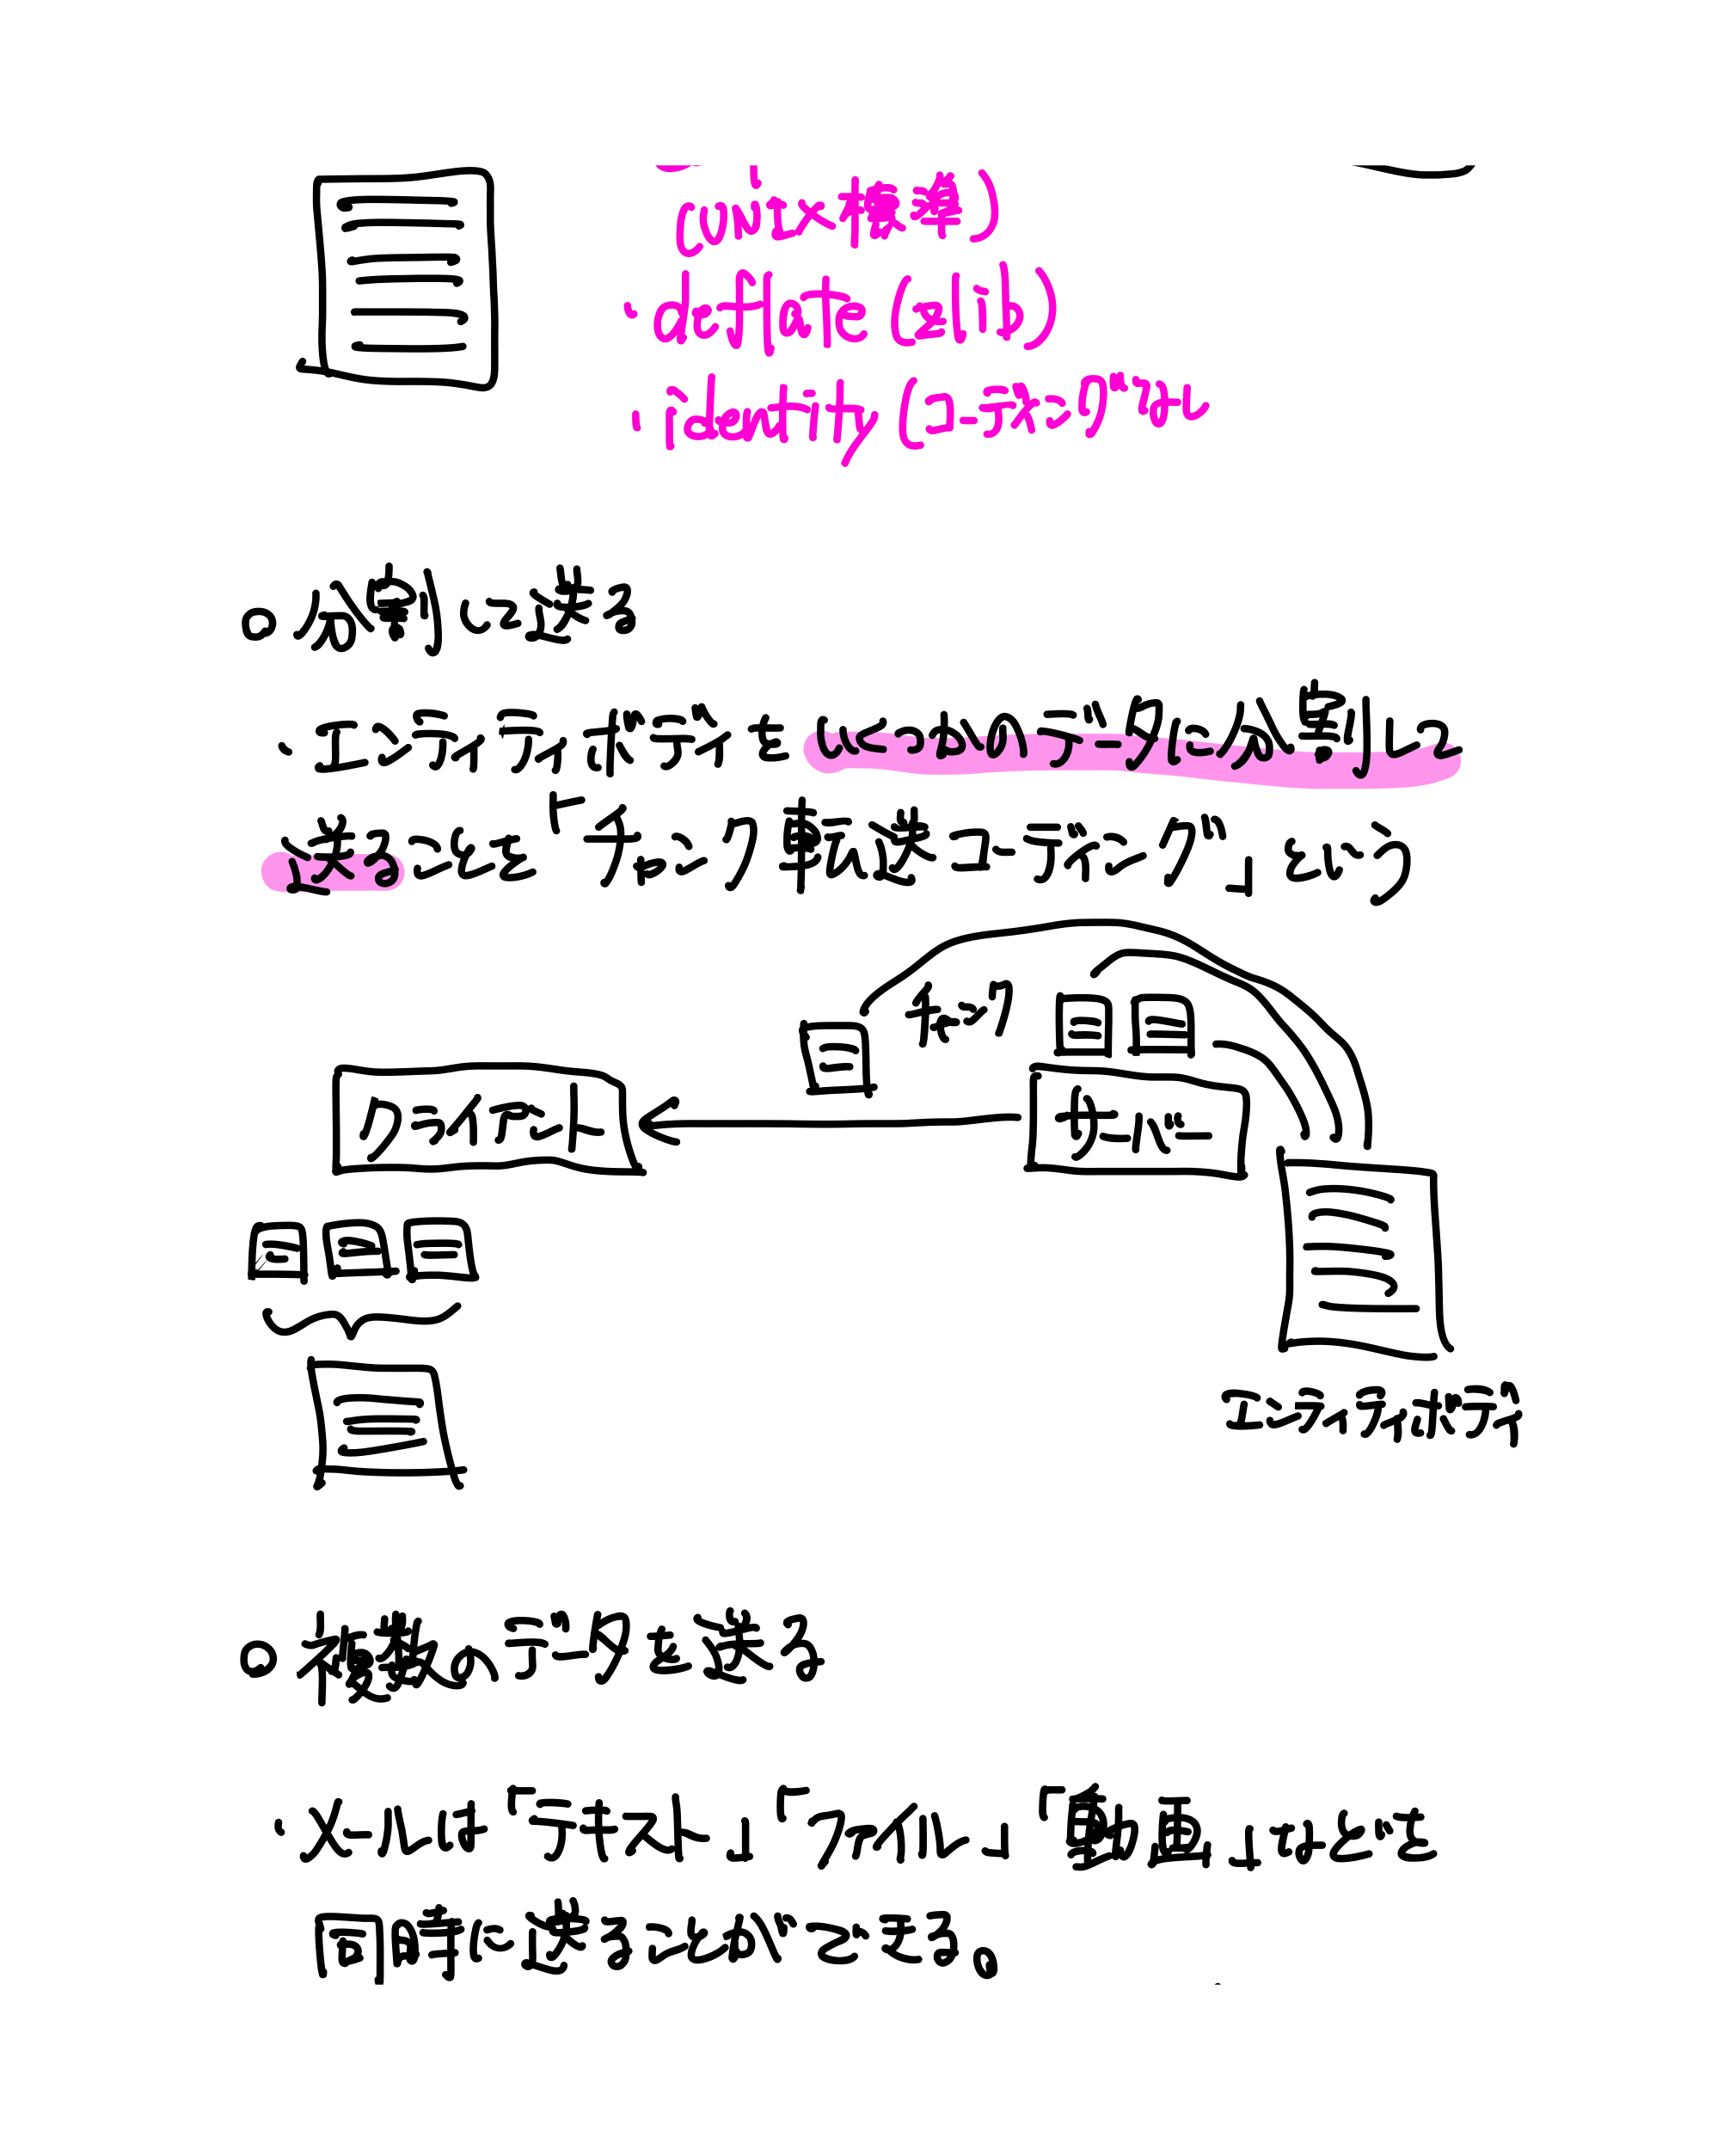 (unix標準)
・deflate (zlib)
・identity (コーディングなし
○分割して送る
・エンティティボディをいくつかのデータに分割して
送ることを「チャンク転送コーディング」という
チャンク
クライアント
サーバー
エンティティボディ
○複数のデータを送る
・メールは「テキスト」「ファイル」「動画」などを
同時に送ることができる。